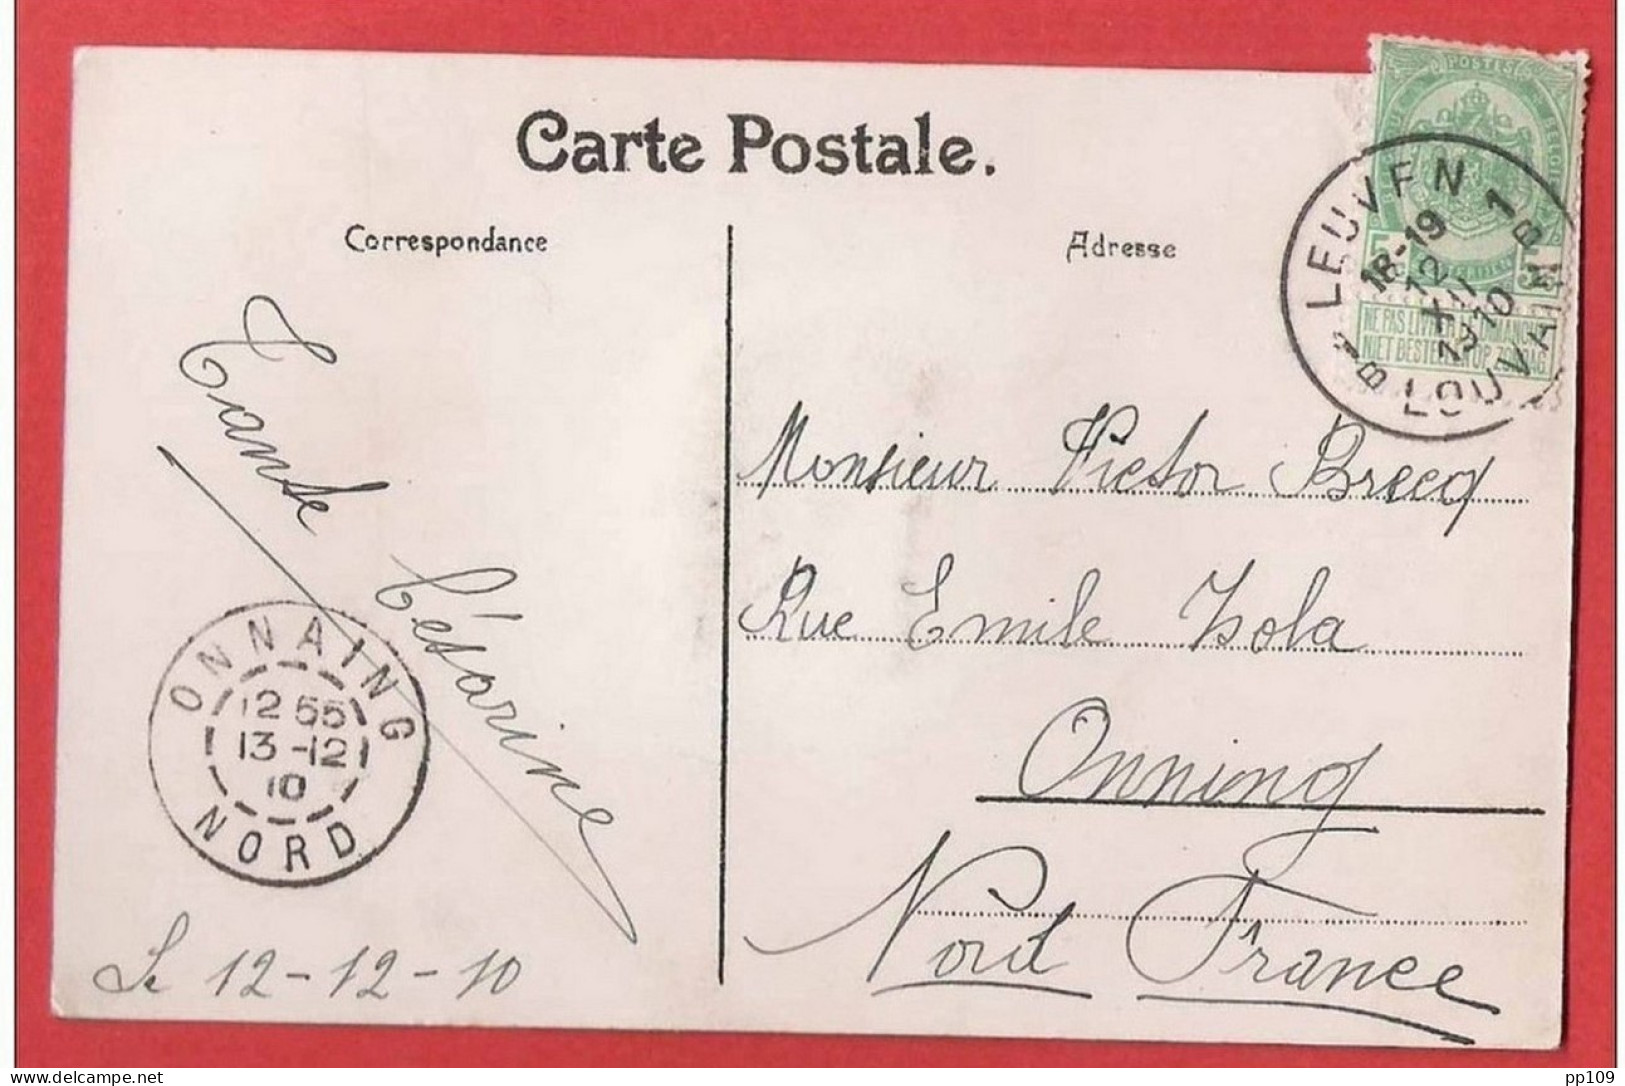 Carte Postale.
Correspondance
Adresse
POSTES
5 5
NE PAS LIVRER LE DIMANCHE
NIET BESTELLEN OP ZONDAG
LEUVEN 1
18-19
12
XII
1910
LOUVAIN
Tante Césarine
Monsieur Victor Brecq
Rue Emile Zsola
Onning
Nord France
ONNAING
12 55
13-12
10
NORD
Le 12-12-10
delcampe.net
pp109